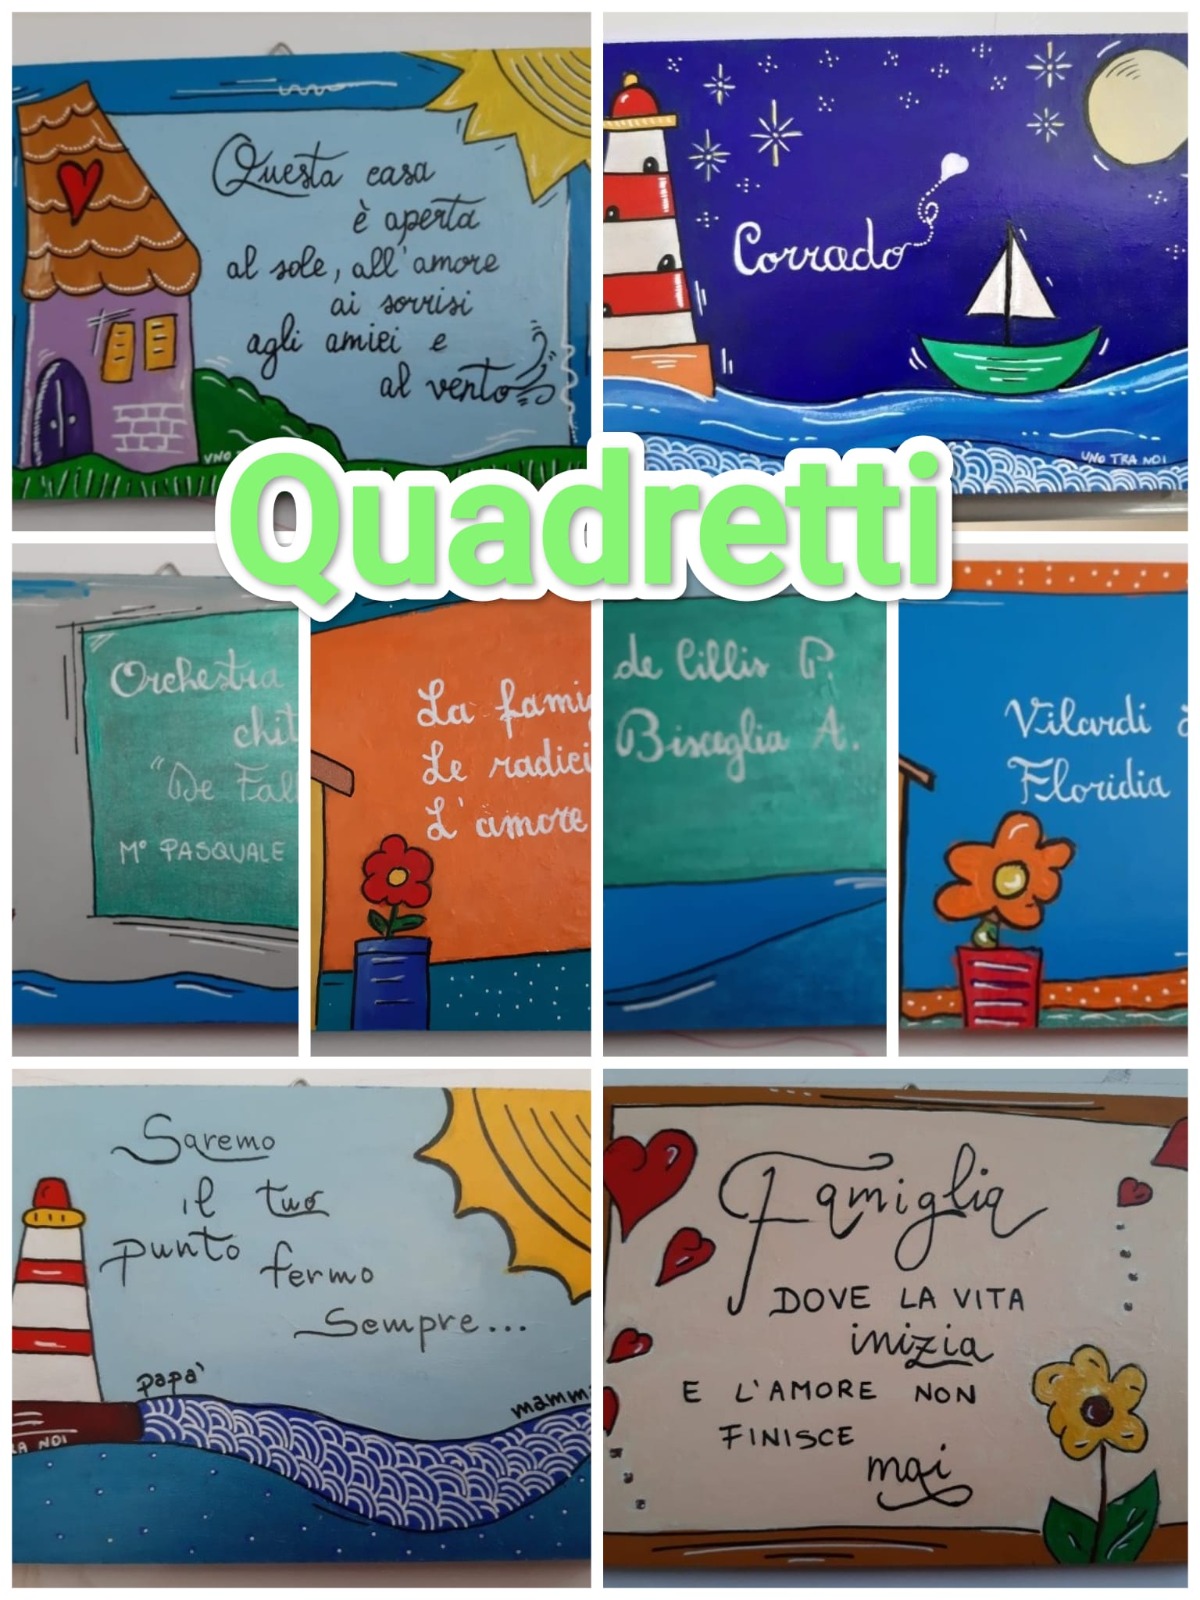 Questa casa
è aperta
al sole, all'amore
ai sorrisi
agli amici e
al vento
VNO
Corrado
UNO TRA NOI
Quadretti
Orchestra
chit
"De Fall
M° PASQUALE
La famig
Le radici
L'amore
de Cillis P.
Bisceglia A.
Vilardi
Floridia
Saremo
il tuo
punto fermo
Sempre...
papa'
mamma
RA NOI
Famiglia
DOVE LA VITA
inizia
E L'AMORE NON
FINISCE
mai